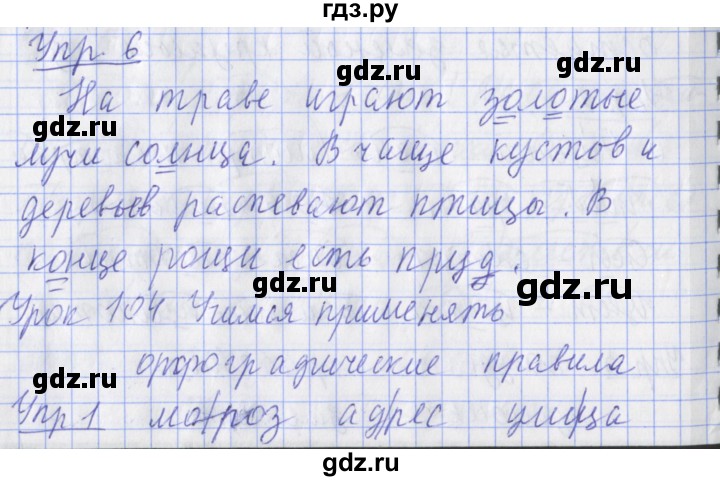 гдз.ру
Упр. 6
На траве играют золотые
лучи солнца. В чаще кустов и
деревьев распевают птицы. В
конце рощи есть пруд.
Урок 104 Учимся применять
орфографические правила
Упр 1 мо/роз ад/рес
gdz.ru
gdz.ru
gdz.ru
gdz.ru
gdz.ru
gdz.ru
gdz.ru
gdz.ru
gdz.ru
gdz.ru